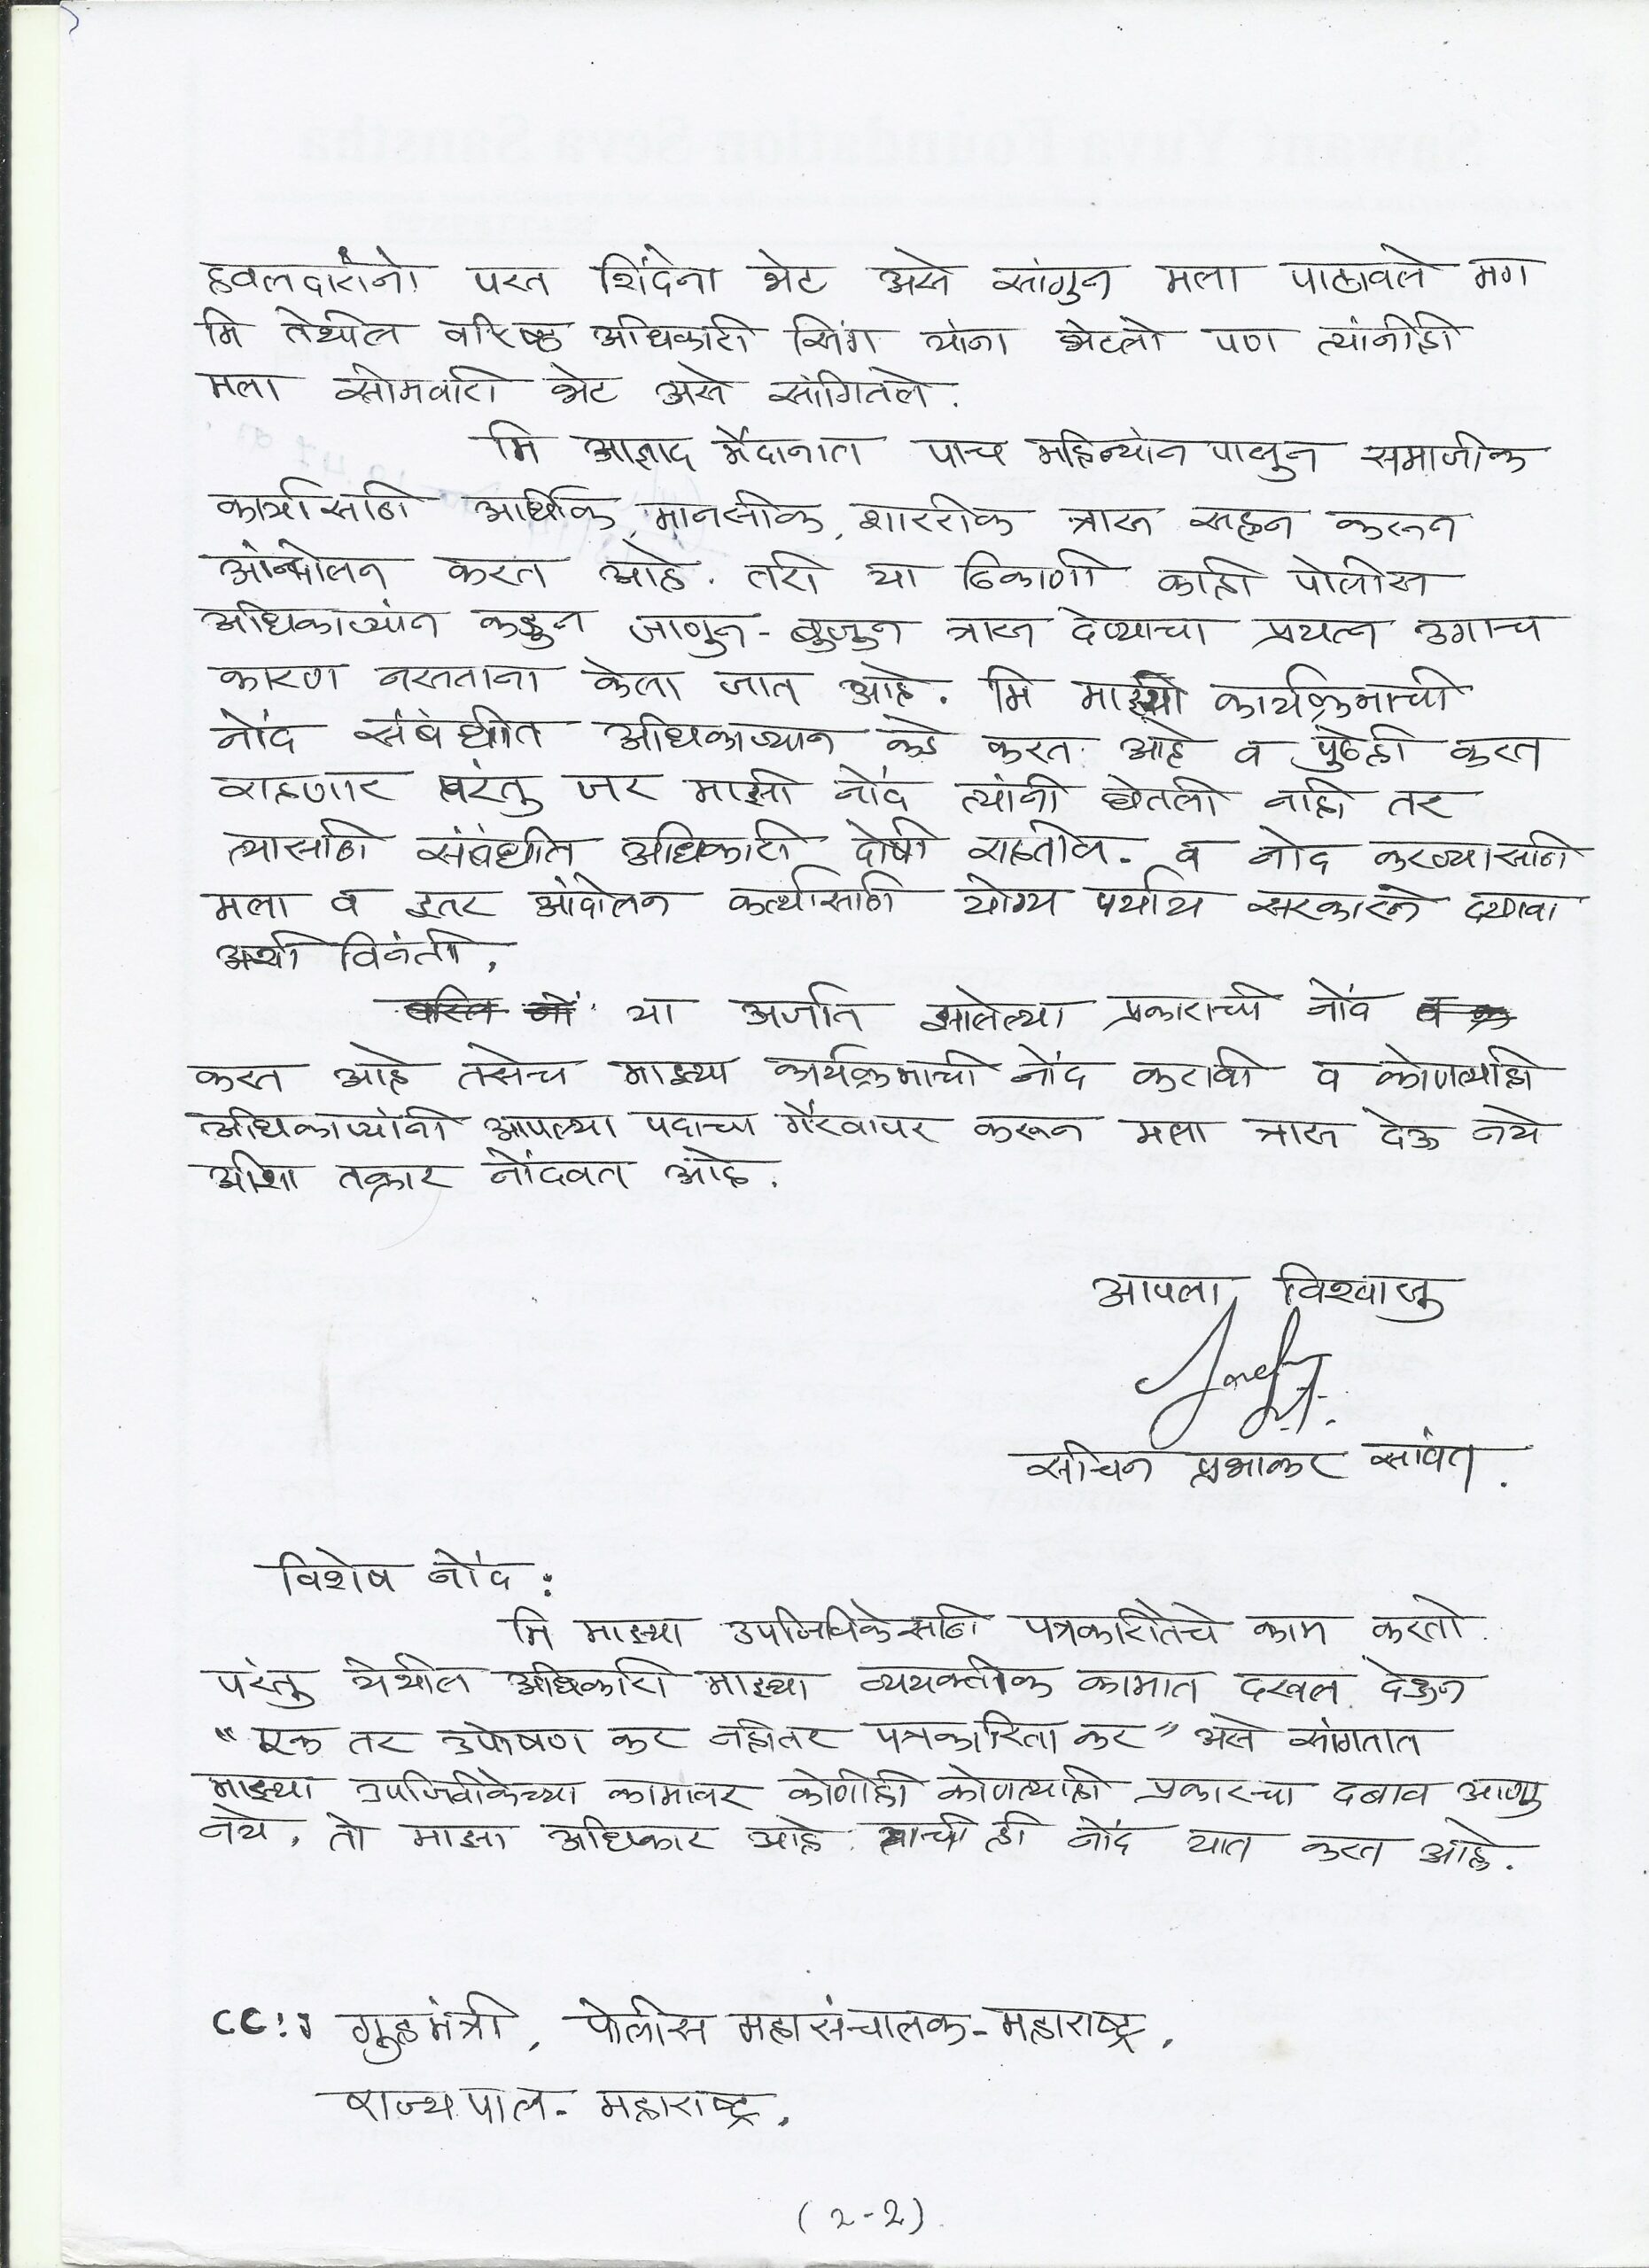 हवलदारांने परत शिंदेना भेट असे सांगुन मला पाठावले मग
मि तेथील वरिष्ठ अधिकारी सिंग यांना भेटलो पण त्यांनीही
मला सोमवारी भेट असे सांगितले.
मि आझाद मैदानात पाच महिन्यांन पासुन समाजीक
कार्यासाठी आर्थीक, मानसीक, शाररीक त्रास सहन करून
आंन्दोलन करत आहे. तरी या ठिकाणी काही पोलीस
अधिकाऱ्यांन कडुन जाणुन-बुजुन त्रास देण्याचा प्रयत्न उगाच
कारण नसताना केला जात आहे. मि माझ्यी कार्यक्रमाची
नोंद संबंधीत अधिकाऱ्यान कडे करत आहे व पुढेही करत
राहणार परंतु जर माझी नोंद त्यांनी घेतली नाही तर
त्यासाठी संबंधीत अधिकारी दोषी राहतील. व नोद करण्यासाठी
मला व इतर आंदोलन कर्त्यासाठी योग्य पर्याय सरकारने द्यावा
अशी विनंती.
या अर्जात झालेल्या प्रकाराची नोंद
करत आहे तसेच माझ्या कार्यक्रमाची नोंद करावी व कोणत्याही
अधिकाऱ्यांनी आपल्या पदाचा गैरवापर करून मला त्रास देऊ नये
अशी तक्रार नोंदवत आहे.
आपला विश्वासु
सचिन प्रभाकर सावंत.
विशेष नोंद :
मि माझ्या उपजिविकेसाठी पत्रकारीतेचे काम करतो.
परंतु येथील अधिकारी माझ्या व्ययक्तीक कामात दखल देऊन
"एक तर उपोषण कर नहीतर पत्रकारिता कर" असे सांगतात
माझ्या उपजिवीकेच्या कामावर कोणीही कोणत्याही प्रकारचा दबाव आणु
नये, तो माझा अधिकार आहे. त्याची ही नोंद यात करत आहे.
CC:- गृहमंत्री, पोलीस महासंचालक-महाराष्ट्र,
राज्यपाल- महाराष्ट्र,
(२-२)